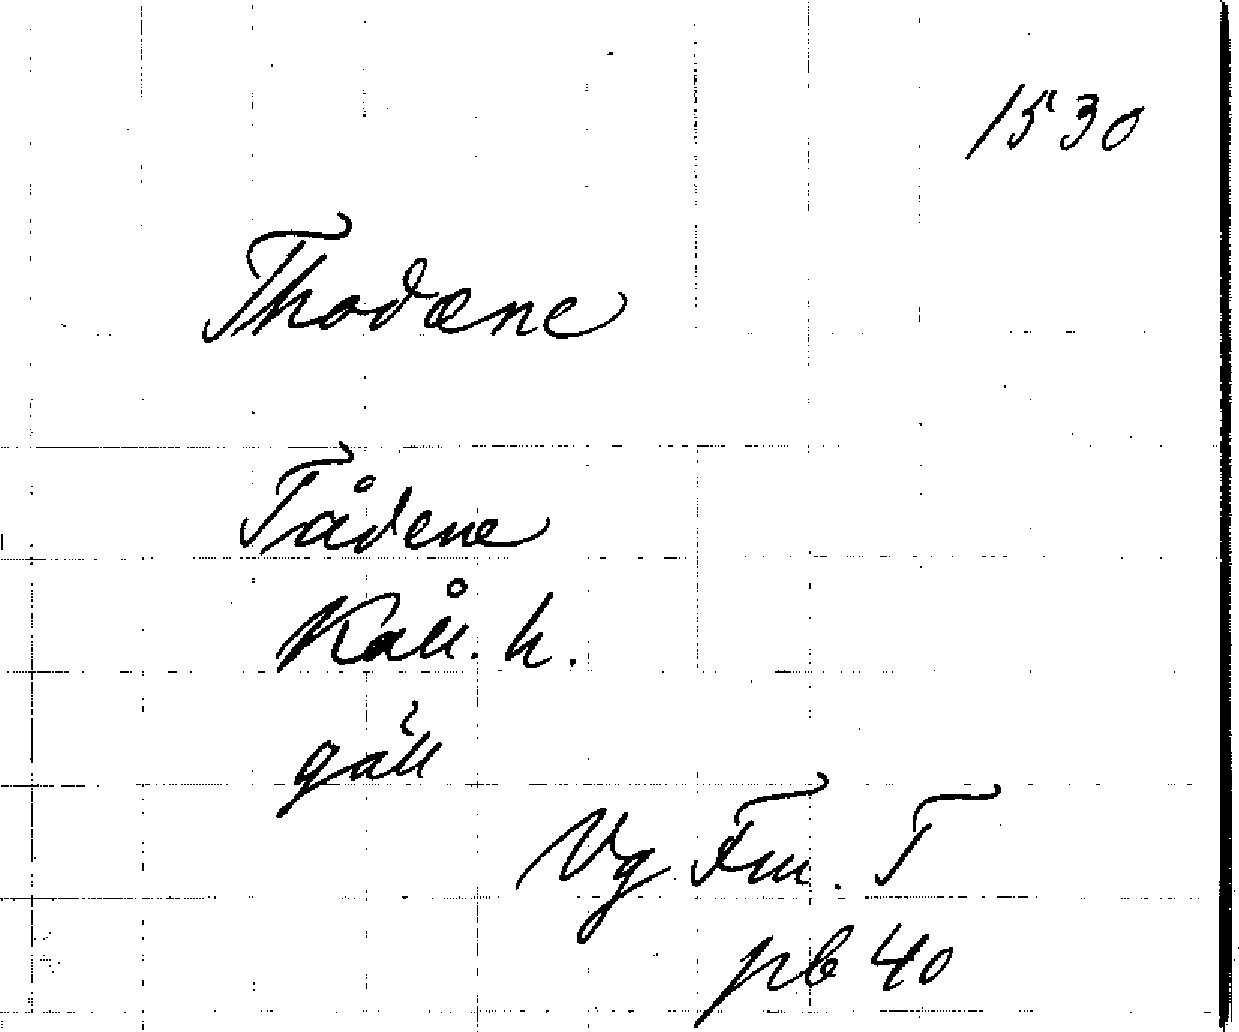 1530
Thodæne
Tådene
Kåll. h.
gäll
Vg Fru. T
pb 40